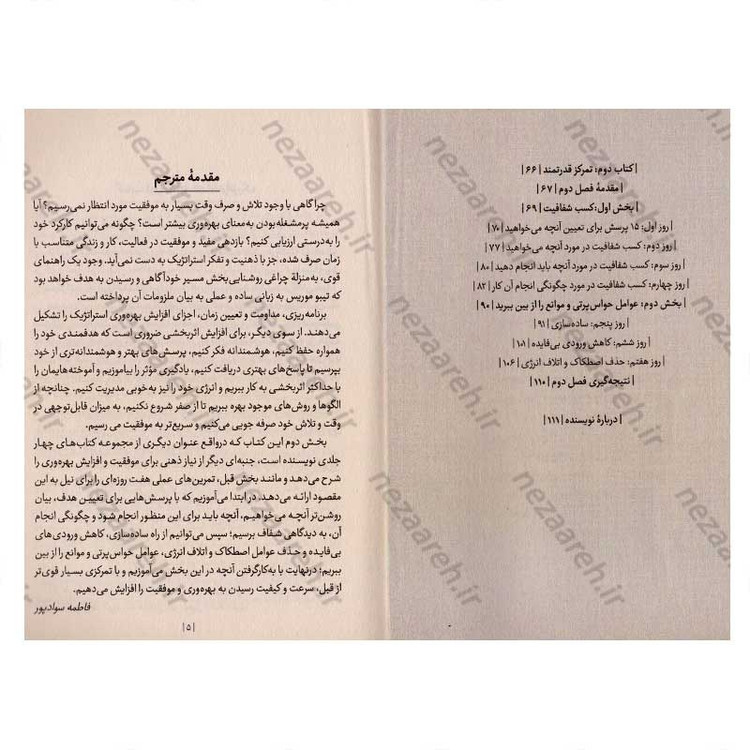 کتاب دوم: تمرکز قدرتمند |۶۶|
مقدمهٔ فصل دوم |۶۷|
بخش اول: کسب شفافیت |۶۹|
|روز اول: ۱۵ پرسش برای تعیین آنچه می‌خواهید |۷۰
|روز دوم: کسب شفافیت در مورد آنچه می‌خواهید |۷۷
|روز سوم: کسب شفافیت در مورد آنچه باید انجام دهید |۸۰
|روز چهارم: کسب شفافیت در مورد چگونگی انجام آن کار |۸۲
بخش دوم: عوامل حواس‌پرتی و موانع را از بین ببرید |۹۰|
|روز پنجم: ساده‌سازی |۹۱
|روز ششم: کاهش ورودی بی‌فایده |۱۰۱
|روز هفتم: حذف اصطکاک و اتلاف انرژی |۱۰۶
نتیجه‌گیری فصل دوم |۱۱۰|
|دربارهٔ نویسنده |۱۱۱|
مقدمهٔ مترجم
چرا گاهی با وجود تلاش و صرف وقت بسیار به موفقیت مورد انتظار نمی‌رسیم؟ آیا
همیشه پرمشغله‌بودن به‌معنای بهره‌وری بیشتر است؟ چگونه می‌توانیم کارکرد خود
را به‌درستی ارزیابی کنیم؟ بازدهی مفید و موفقیت در فعالیت، کار و زندگی متناسب با
زمان صرف شده، جز با ذهنیت و تفکر استراتژیک به دست نمی‌آید. وجود یک راهنمای
قوی، به‌منزلهٔ چراغی روشنایی‌بخش مسیر خودآگاهی و رسیدن به هدف خواهد بود
که تیبو موریس به زبانی ساده و عملی به بیان ملزومات آن پرداخته است.
برنامه‌ریزی، مداومت و تعیین زمان، اجزای افزایش بهره‌وری استراتژیک را تشکیل
می‌دهند. از سوی دیگر، برای افزایش اثربخشی ضروری است که هدفمندی خود را
همواره حفظ کنیم، هوشمندانه فکر کنیم، پرسش‌های بهتر و هوشمندانه‌تری از خود
بپرسیم تا پاسخ‌های بهتری دریافت کنیم، یادگیری مؤثر را بیاموزیم و آموخته‌هایمان را
با حداکثر اثربخشی به کار ببریم و انرژی خود را نیز به‌خوبی مدیریت کنیم. چنانچه از
الگوها و روش‌های موجود بهره ببریم تا از صفر شروع نکنیم، به میزان قابل‌توجهی در
وقت و تلاش خود صرفه جویی می‌کنیم و سریع‌تر به موفقیت می رسیم.
بخش دوم این کتاب که درواقع عنوان دیگری از مجموعه کتاب‌های چهار
جلدی نویسنده است، جنبه‌ای دیگر از نیاز ذهنی برای موفقیت و افزایش بهره‌وری را
شرح می‌دهد و مانند بخش قبل، تمرین‌های عملی هفت روزه‌ای را برای نیل به این
مقصود ارائه می‌دهد. در ابتدا می‌آموزیم که با پرسش‌هایی برای تعیین هدف، بیان
روشن‌تر آنچه می‌خواهیم، آنچه باید برای این منظور انجام شود و چگونگی انجام
آن، به دیدگاهی شفاف برسیم؛ سپس می‌توانیم از راه ساده‌سازی، کاهش ورودی‌های
بی‌فایده و حذف عوامل اصطکاک و اتلاف انرژی، عوامل حواس‌پرتی و موانع را از بین
ببریم؛ درنهایت با به‌کارگرفتن آنچه در این بخش می‌آموزیم و با تمرکزی بسیار قوی‌تر
از قبل، سرعت و کیفیت رسیدن به بهره‌وری و موفقیت را افزایش می‌دهیم.
فاطمه سوادپور
|۵|
nezaareh.ir